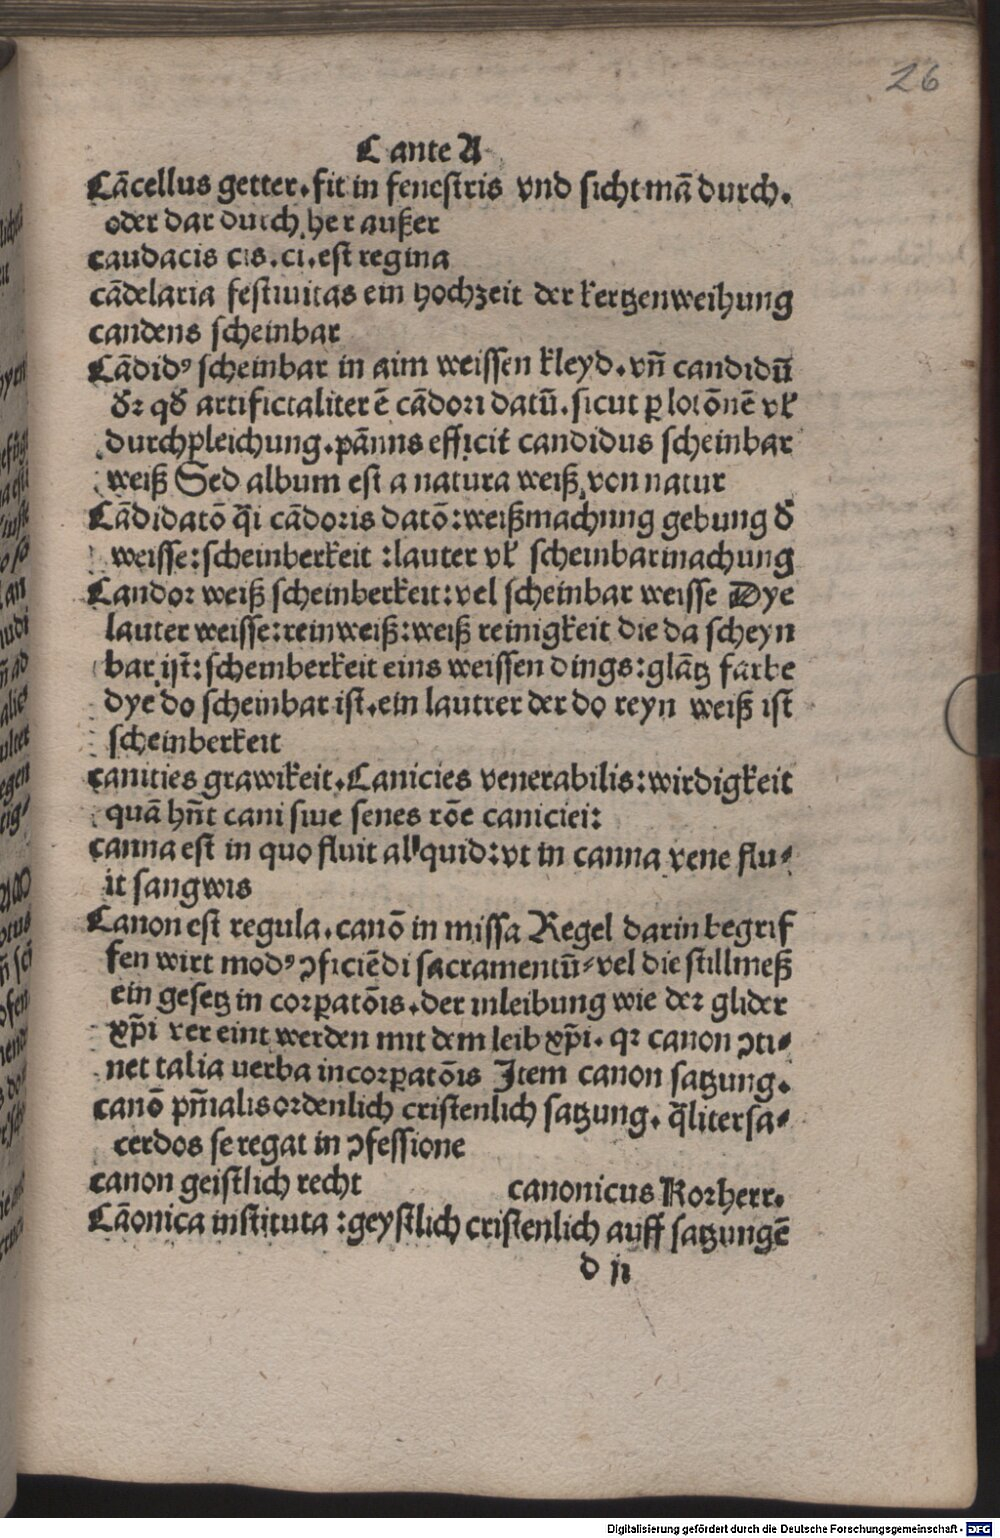 26
C ante A
Cācellus getter. fit in fenestris vnd sicht mā durch.
oder dar durch her außer
caudacis cis. ci. est regina
cādelaria festiuitas ein hochzeit der kertzenweihung
candens scheinbar
Cādidꝰ scheinbar in aim weissen kleyd. vn̄ candidū
dꝛ qđ artificialiter ē cādoꝛi datū. sicut ꝑ lotōnē vł
durchpleichung. pānns efficit candidus scheinbar
weiß Sed album est a natura weiß von natur
Cādidatō q̄i cādoꝛis datō: weißmachung gebung đ
weisse: scheinberkeit : lauter vł scheinbarmachung
Candoꝛ weiß scheinberkeit: vel scheinbar weisse Dye
lauter weisse: reinweiß: weiß reinigkeit die da scheyn
bar ist: scheinberkeit eins weissen dings: glātz farbe
dye do scheinbar ist. ein lautrer der do reyn weiß ist
scheinberkeit
canities grawikeit. Canicies venerabilis: wirdigkeit
quā hn̄t cani siue senes rōe caniciei:
canna est in quo fluit alꝰquid: vt in canna vene flu⸗
it sangwis
Canon est regula. canō in missa Regel darin begrif
fen wirt modꝰ ꝯficiēdi sacramentū⸗vel die stillmeß
ein gesetz in coꝛꝑatōis. der inleibung wie deꝛ glider
xp̄i ver eint werden mit dem leib xp̄i. qꝛ canon ꝯti⸗
net talia uerba incoꝛꝑatōis Item canon satzung.
canō pn̄ialis oꝛdenlich cristenlich satzung. q̄liter sa⸗
cerdos se regat in ꝯfessione
canon geistlich recht canonicus Koꝛherr.
Cāonica instituta : geystlich cristenlich auff satzungē
d ij
Digitalisierung gefördert durch die Deutsche Forschungsgemeinschaft - DFG